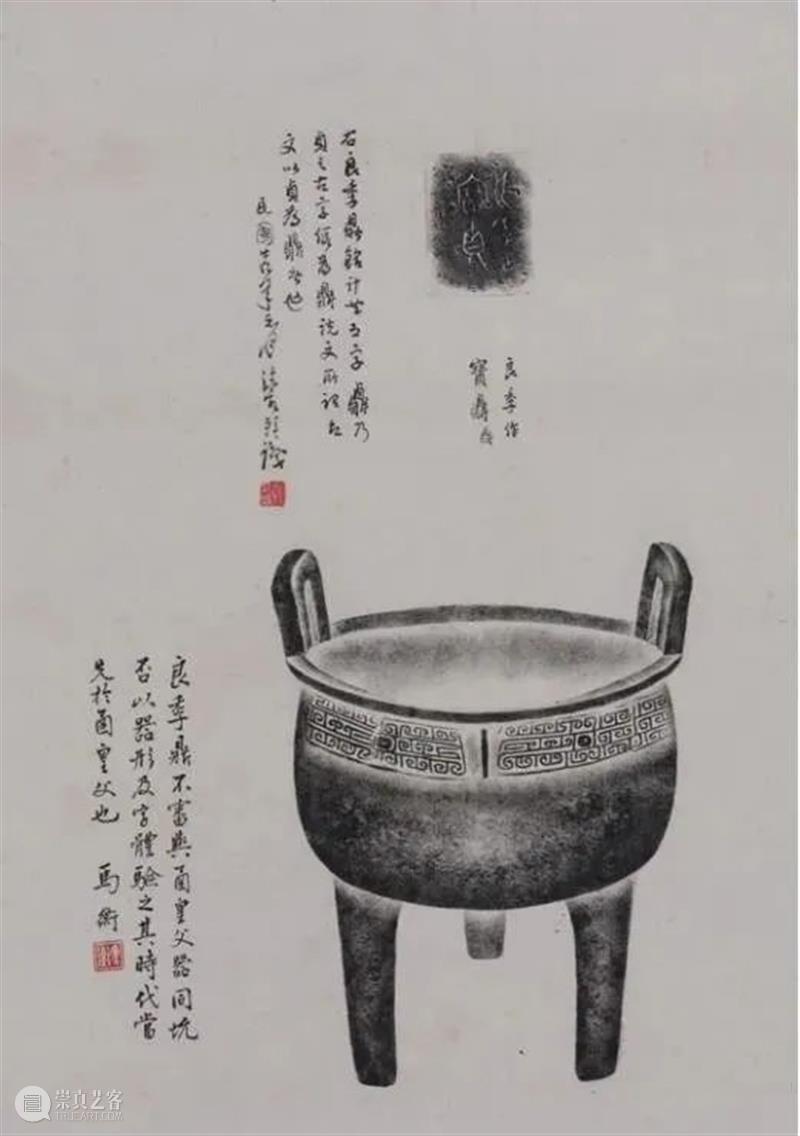 良季作
寶鼎
右良季鼎銘計共五字鼎乃
貞之古字假為鼎說文所謂古
文以貞為鼎者也
民國
良季鼎不審與函皇父器同坑
否以器形及字體驗之其時代當
先於函皇父也 馬衡
崇真艺客
TRUEART.COM